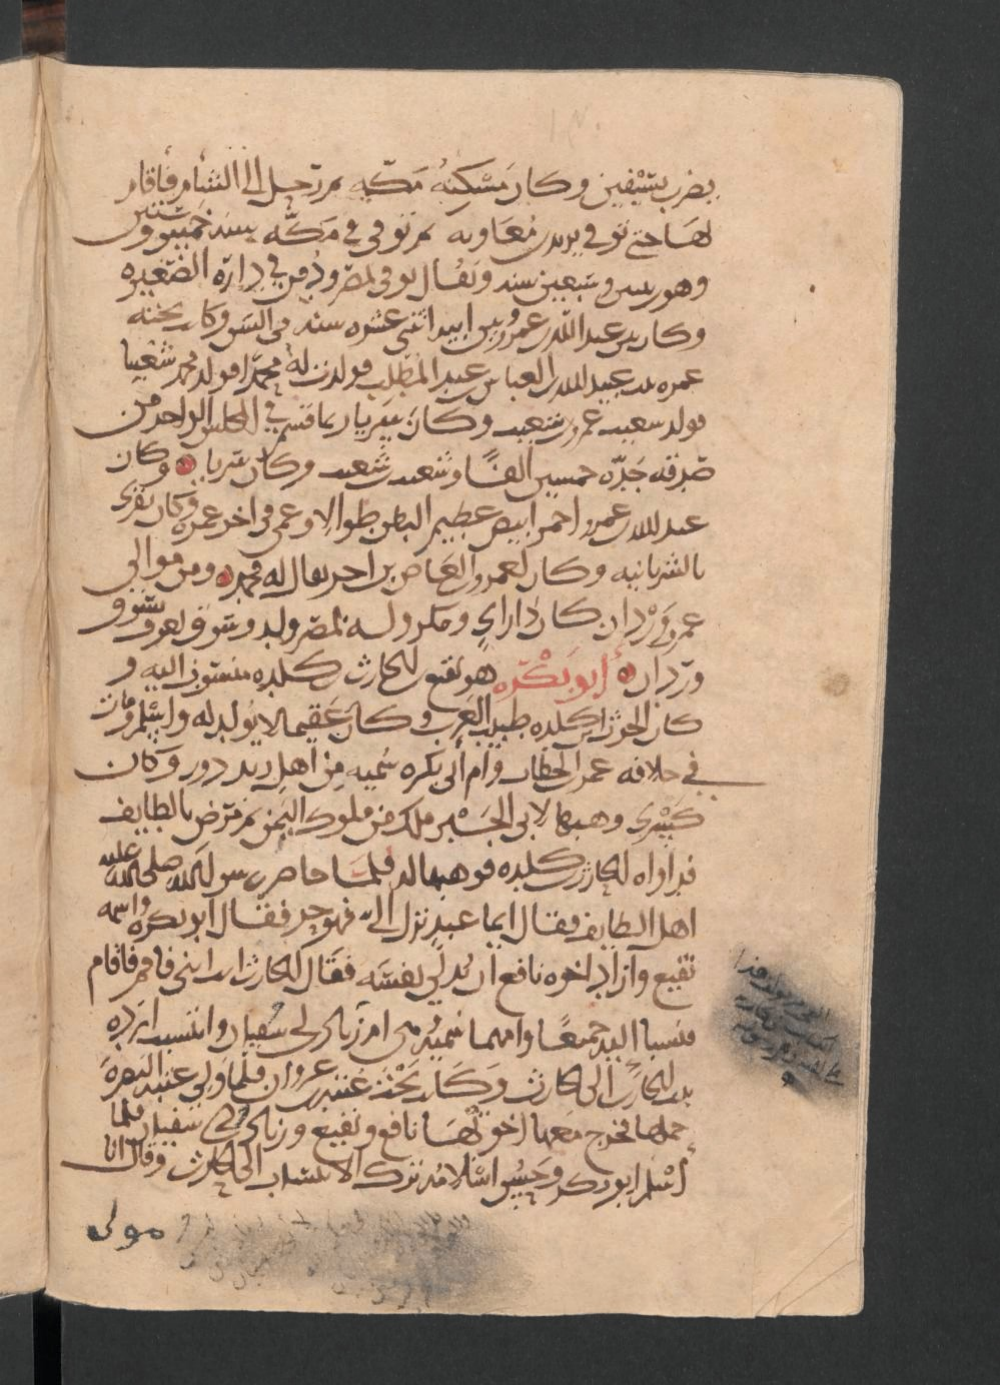 يضرب بسيفين وكان مسكنه مكه ثم رحل الى الشام فاقام
بها حتى توفي يزيد بن معاويه ثم توفي في مكه سنه خمس وستين
وهو بن وسبعين سنه ويقال توفي بمصر ودفن في داره الصغيره
وكان بين عبد الله بن عمرو وبين ابيه اثنتي عشره سنه في السن وكان تحته
عمره بنت عبيد الله بن العباس بن عبد المطلب فولدت له محمدا فولد محمد شعيبا
فولد شعيب عمرو بن شعيب وكان سريا ربما قسم في المجلس الواحد من
صدقه جده خمسين الفا وشعيب بن شعيب وكان سريا وكان
عبد الله بن عمرو احمر ابيض عظيم البطن طوالا وعمي في اخر عمره وكان يقرى
بالسريانيه وكان لعمرو بن العاص بن اخر يقال له محمد ومن موالي
عمرو وردان كان ذا راي ومكر وله بمصر ولد وسوق يعرف بسوق
وردان ابو بكره هو نفيع بن الحارث بن كلده منسوب اليه و
كان الحرث ابن كلده طبيب العرب وكان عقيما لا يولد له واسلم ومات
في خلافه عمر بن الخطاب وام ابي بكره سميه من اهل زندرود وكان
كسرى وهبها لابي الجبر ملك من ملوك اليمن ثم مرض بالطايف
فداواه الحارث بن كلده فوهبها له فلما حاصر رسول الله صلى الله عليه
اهل الطايف فقال ايما عبد نزل الي فهو حر فقال ابو بكره واسمه
نفيع واراد اخوه نافع ان يدلي نفسه فقال الحارث انت ابني فاقم فاقام
فنسبا اليه جميعا وامهما سميه هي ام زياد بن ابي سفيان وانتسبت ازده
بنت الحارث الى الحارث وكان تحت عتبه بن غزوان فلما ولي عتبه البصره
حملها فخرج معها اخوتها نافع ونفيع وزياد بن ابي سفيان فلما
اسلم ابو بكره وحسن اسلامه ترك الانتساب الى الحارث وقال انا
مولى